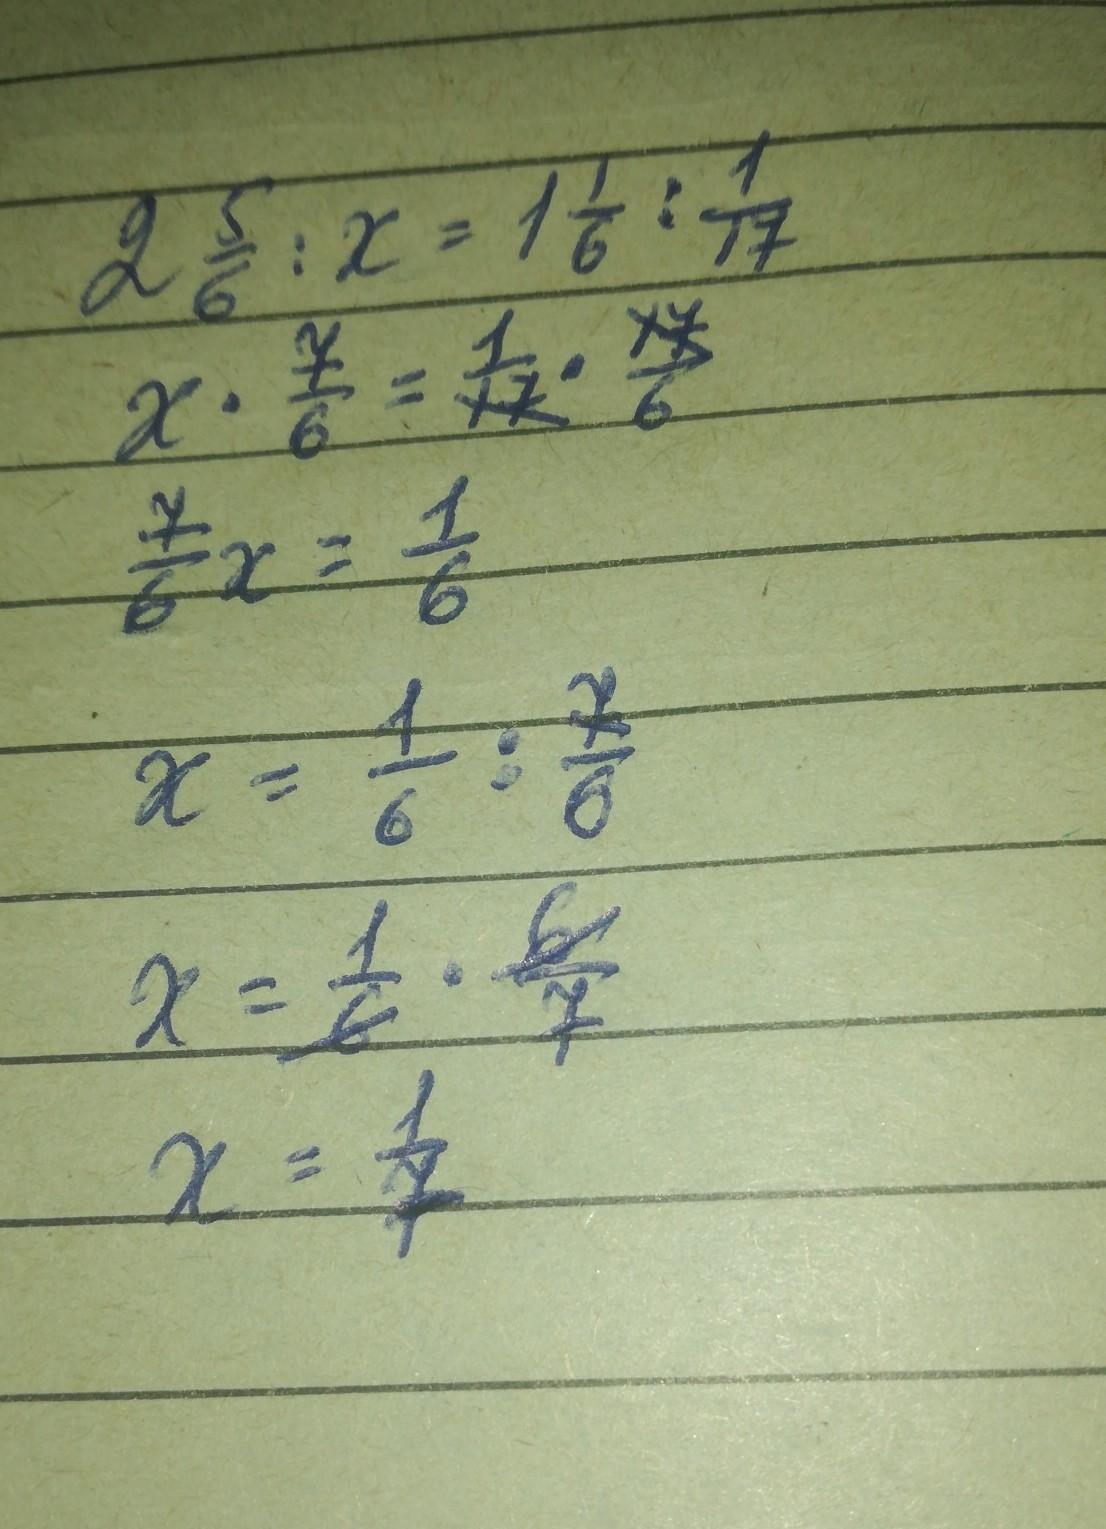 2 5/6 : x = 1 1/6 : 1/17
x · 7/6 = 1/17 · 17/6
7/6 x = 1/6
x = 1/6 : 7/6
x = 1/6 · 6/7
x = 1/7